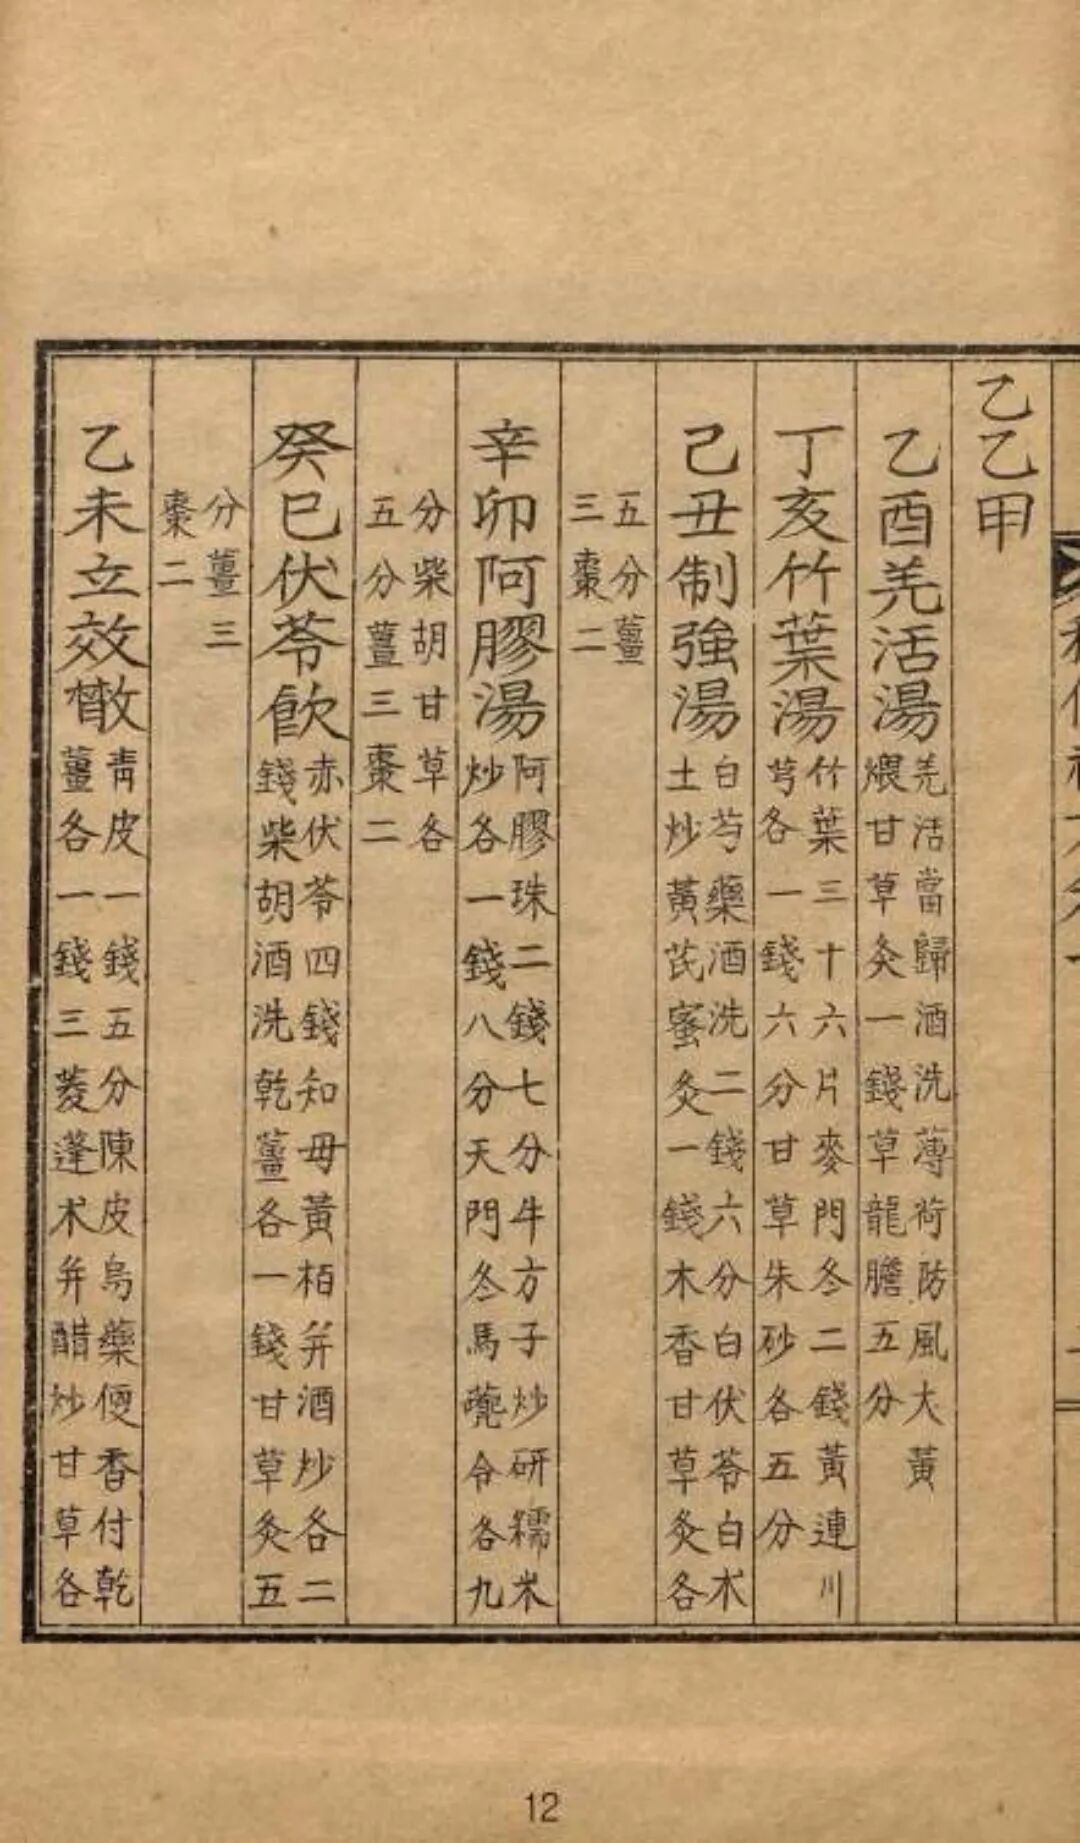 乙乙甲
乙酉羌活湯
羌活當歸酒洗薄荷防風大黃
煨甘草灸一錢草龍膽五分
丁亥竹葉湯
竹葉三十六片麥門冬二錢黃連川
芎各一錢六分甘草朱砂各五分
己丑制強湯
白芍藥酒洗二錢六分白伏苓白朮
土炒黃芪蜜灸一錢木香甘草灸各
五分薑
三棗二
辛卯阿膠湯
阿膠珠二錢七分牛方子炒研糯米
炒各一錢八分天門冬馬蔸令各九
分柴胡甘草各
五分薑三棗二
癸巳伏苓飮
赤伏苓四錢知毋黃栢并酒炒各二
錢柴胡酒洗乾薑各一錢甘草灸五
分薑三
棗二
乙未立效散
靑皮一錢五分陳皮烏藥便香付乾
薑各一錢三菱蓬朮并醋炒甘草各
12